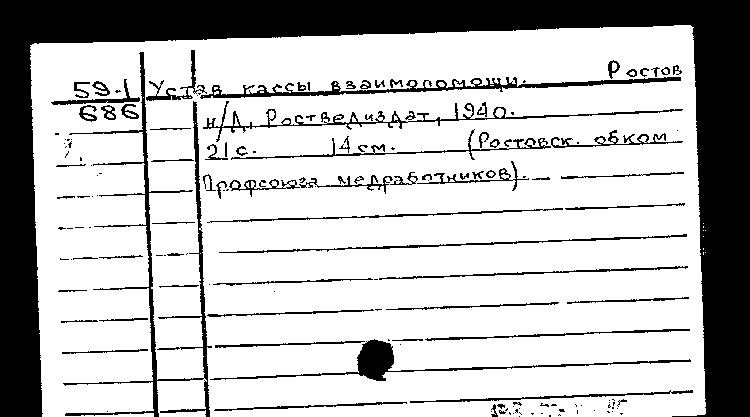 59-1 Устав кассы взаимопомощи. Ростов
686 н/Д, Роствердиздат, 1940.
21с. 14см. (Ростовск. обком
Профсоюза медработников).